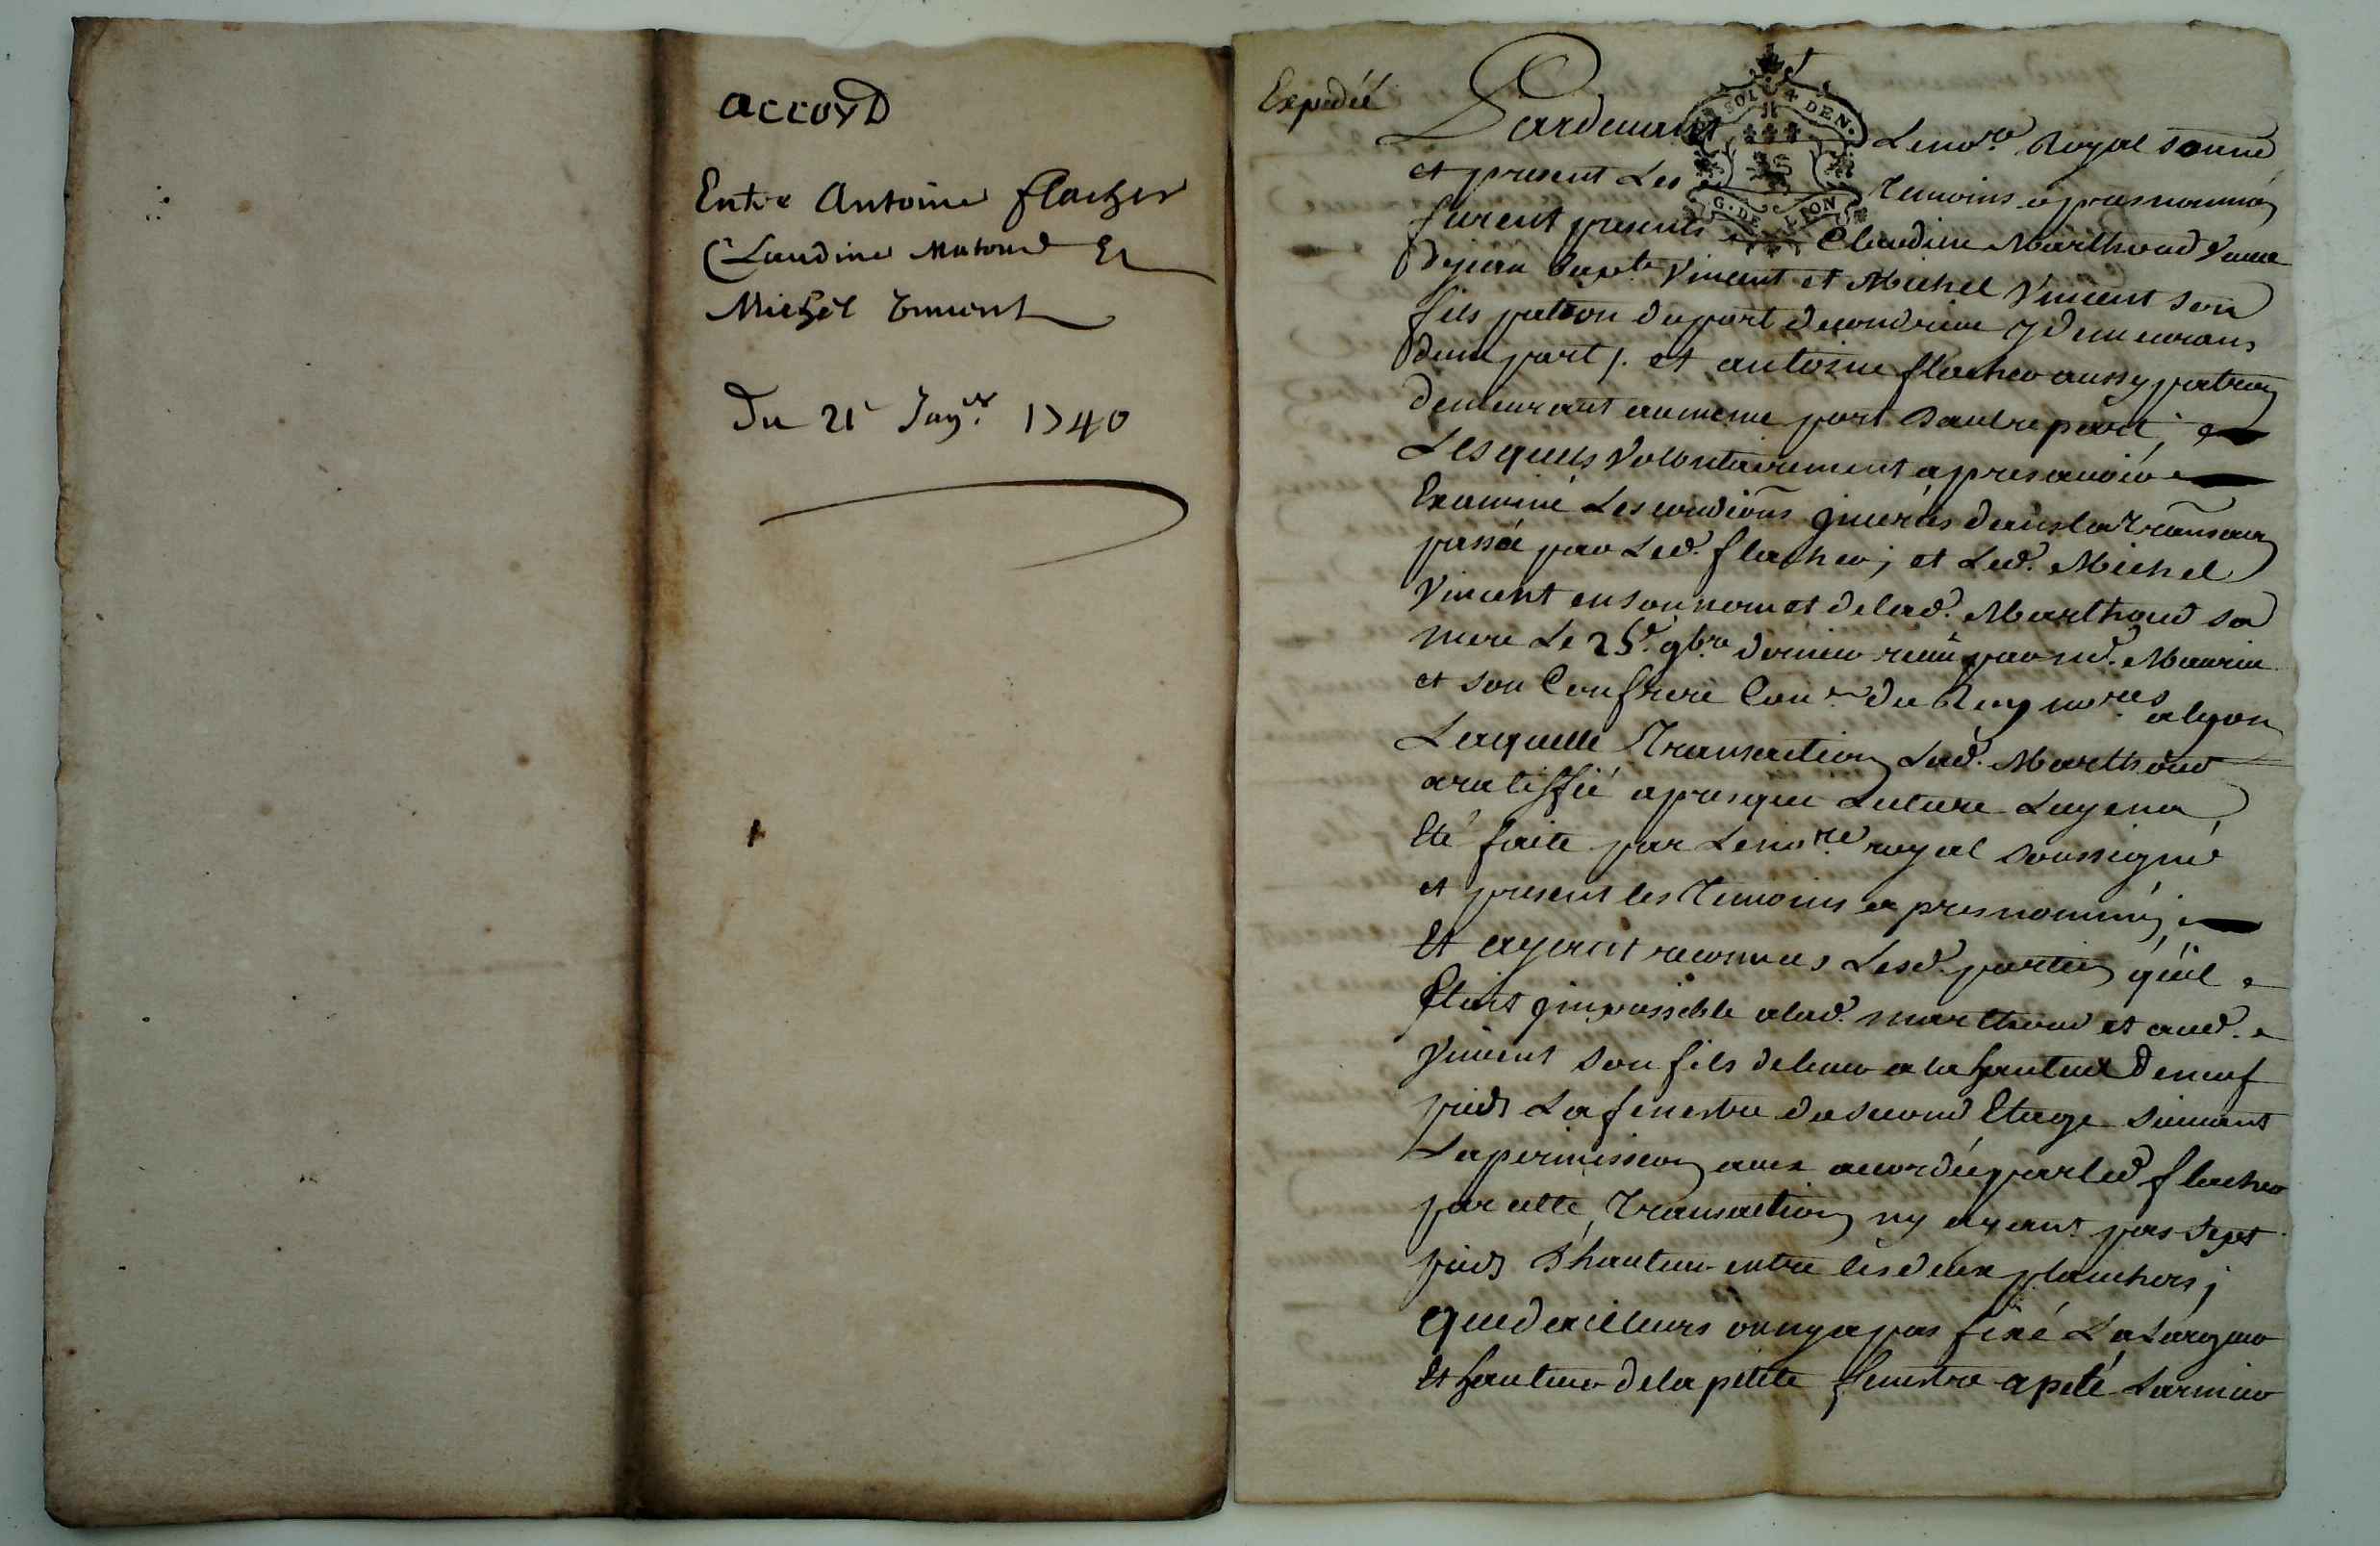 accord
Entre Antoine flacher
Claudine Matoud Et
Michel vincent
Du 21e Janv.er 1740
Expedié
SOL DEN.
G. DE LION
Pardevant Le no.re Royal soussé
et present Les temoins après nommés
furent presents Claudine Marthoud veuve
de jean bap.te Vincent et Michel Vincent son
fils patron du port de condrieu y demeurans
d'une part ; et antoine flacher aussy patron
demeurant au meme port d'autre part ;
Lesquels volontairement apres avoir
Examiné Les condiõns inserées dans la transaõn
passée par Led. flacher ; et Led. Michel
Vincent en son nom et de lad. Marthoud sa
mere Le 25e. 9bre dernier reçüe par m.e Maurin
et son Confrere Con.rs du Roy no.res a lyon
Laquelle Transaction Lad. Marthoud
a ratiffié apres que Lecture Luy en a
Eté faite par Le no.re royal soussigné
et present les temoins apres nommés ;
Et ayant reconnus Lesd. parties qu'il
Etoit impossible a lad. marthoud et aud.
Vincent son fils de lever a la hauteur de neuf
pieds La fenestre du second Etage suivant
La permission a eux accordée par led flacher
par cette Transaction n'y ayant pas sept
pieds d'hauteur entre les deux planchers ;
que d'ailleurs on n'y a pas fixé La Largeur
Et hauteur de la petite fenestre apelé Larmier